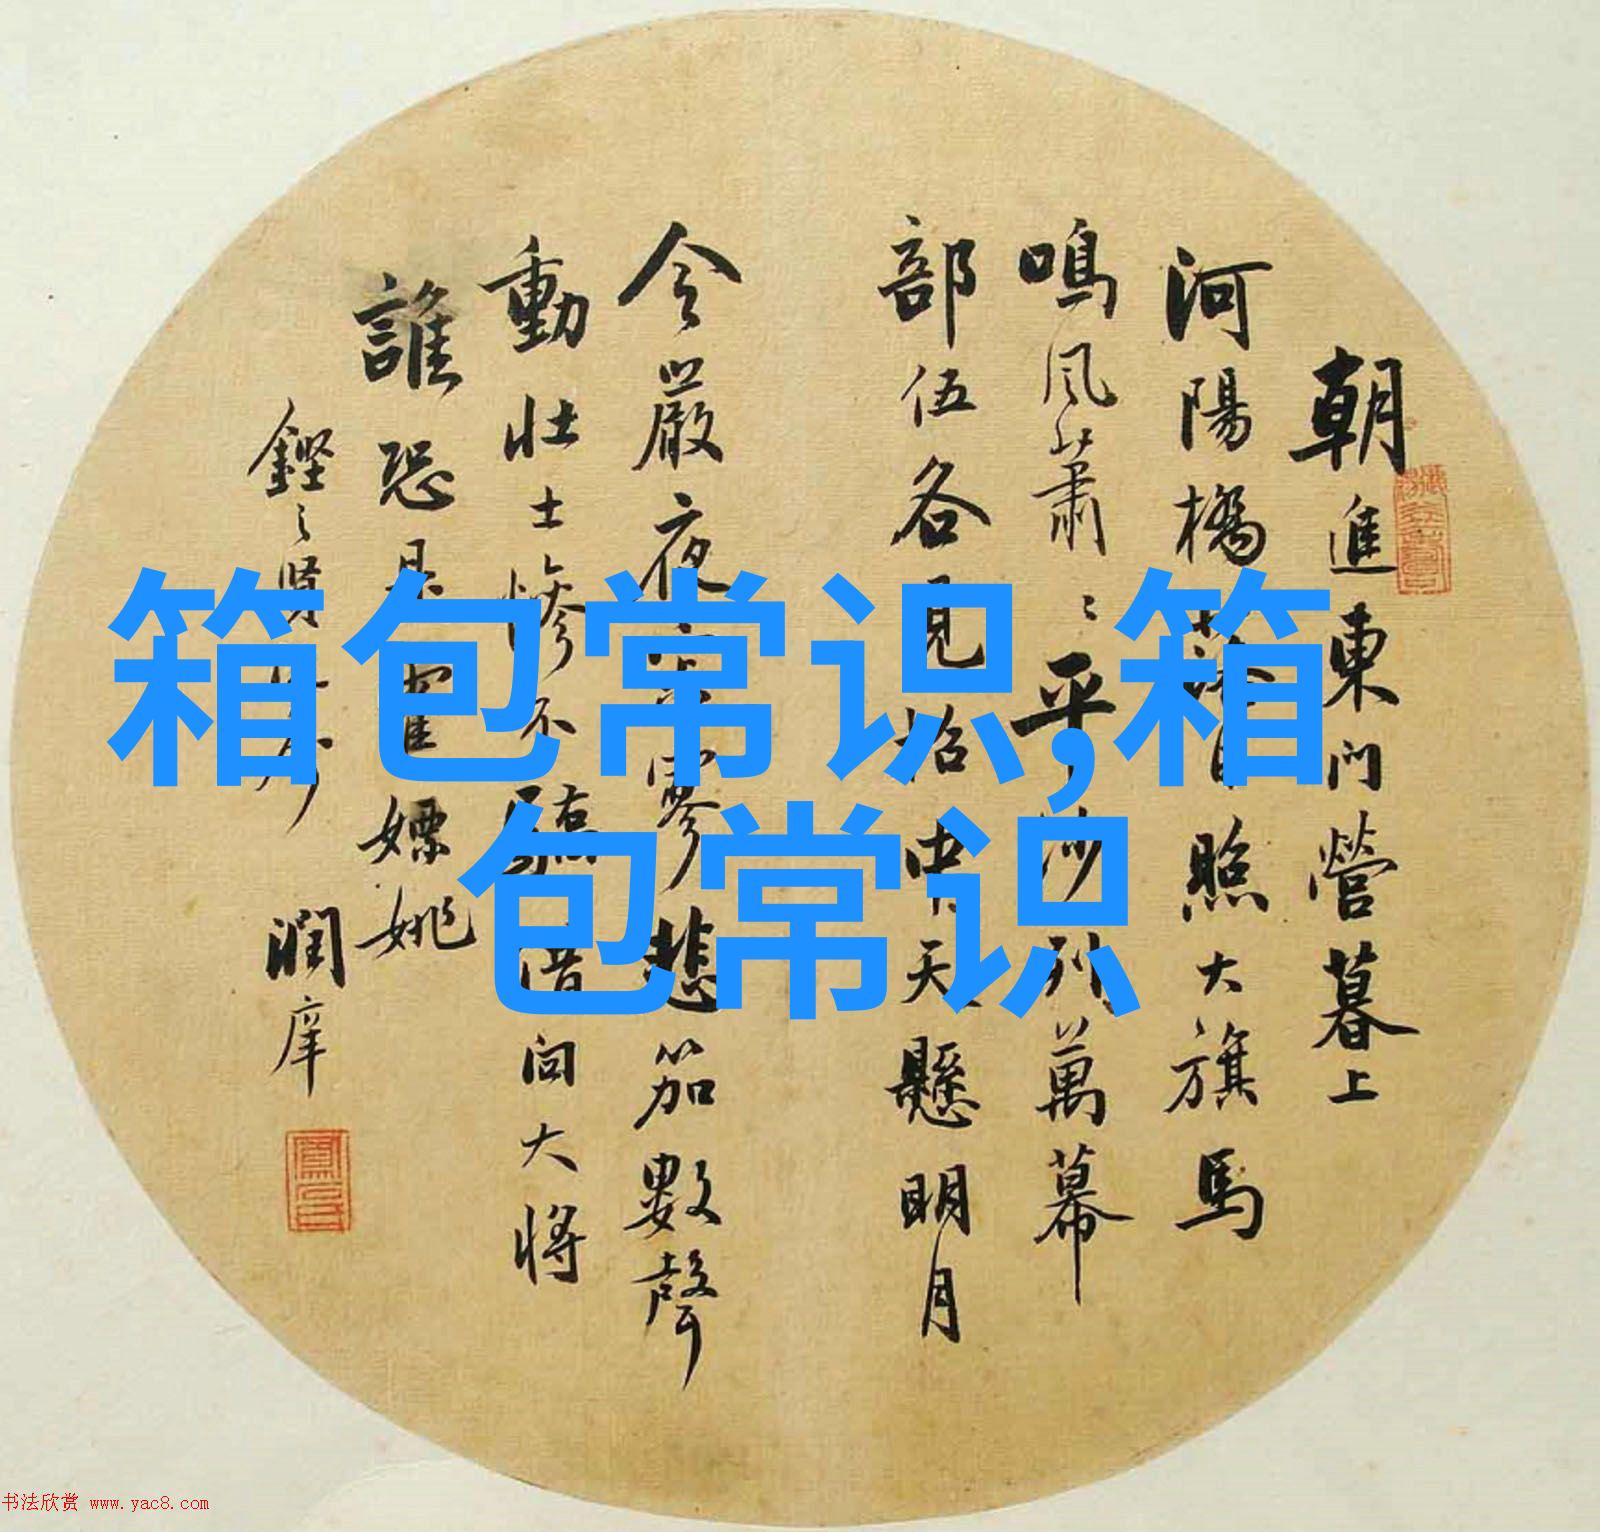 朝進東門營暮上
河陽橋落日照大旗馬
鳴風蕭〻平沙列萬幕
部伍各見招中天懸明月
令嚴夜寂寥悲笳數聲
動壯士慘不驕借问大將
誰恐是霍嫖姚
潤庠
箱包常识,箱
包常识
书法欣赏 www.yac8.com